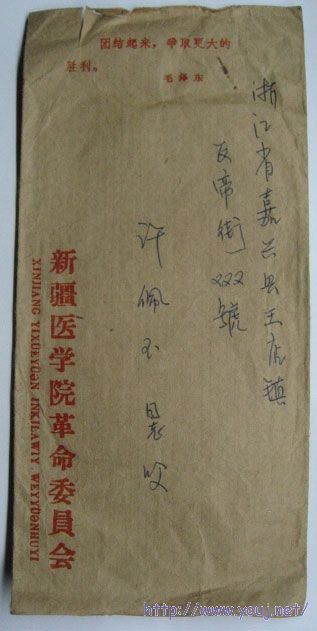 团结起来，争取更大的
胜利。
毛泽东
浙江省嘉兴县王店镇
反帝街 號
许佩玉 收
新疆医学院革命委員会
XINJIANG YIXUEYÜƏN INKILAWIY WEYYUƏNHUYI
http://www.youj.net/